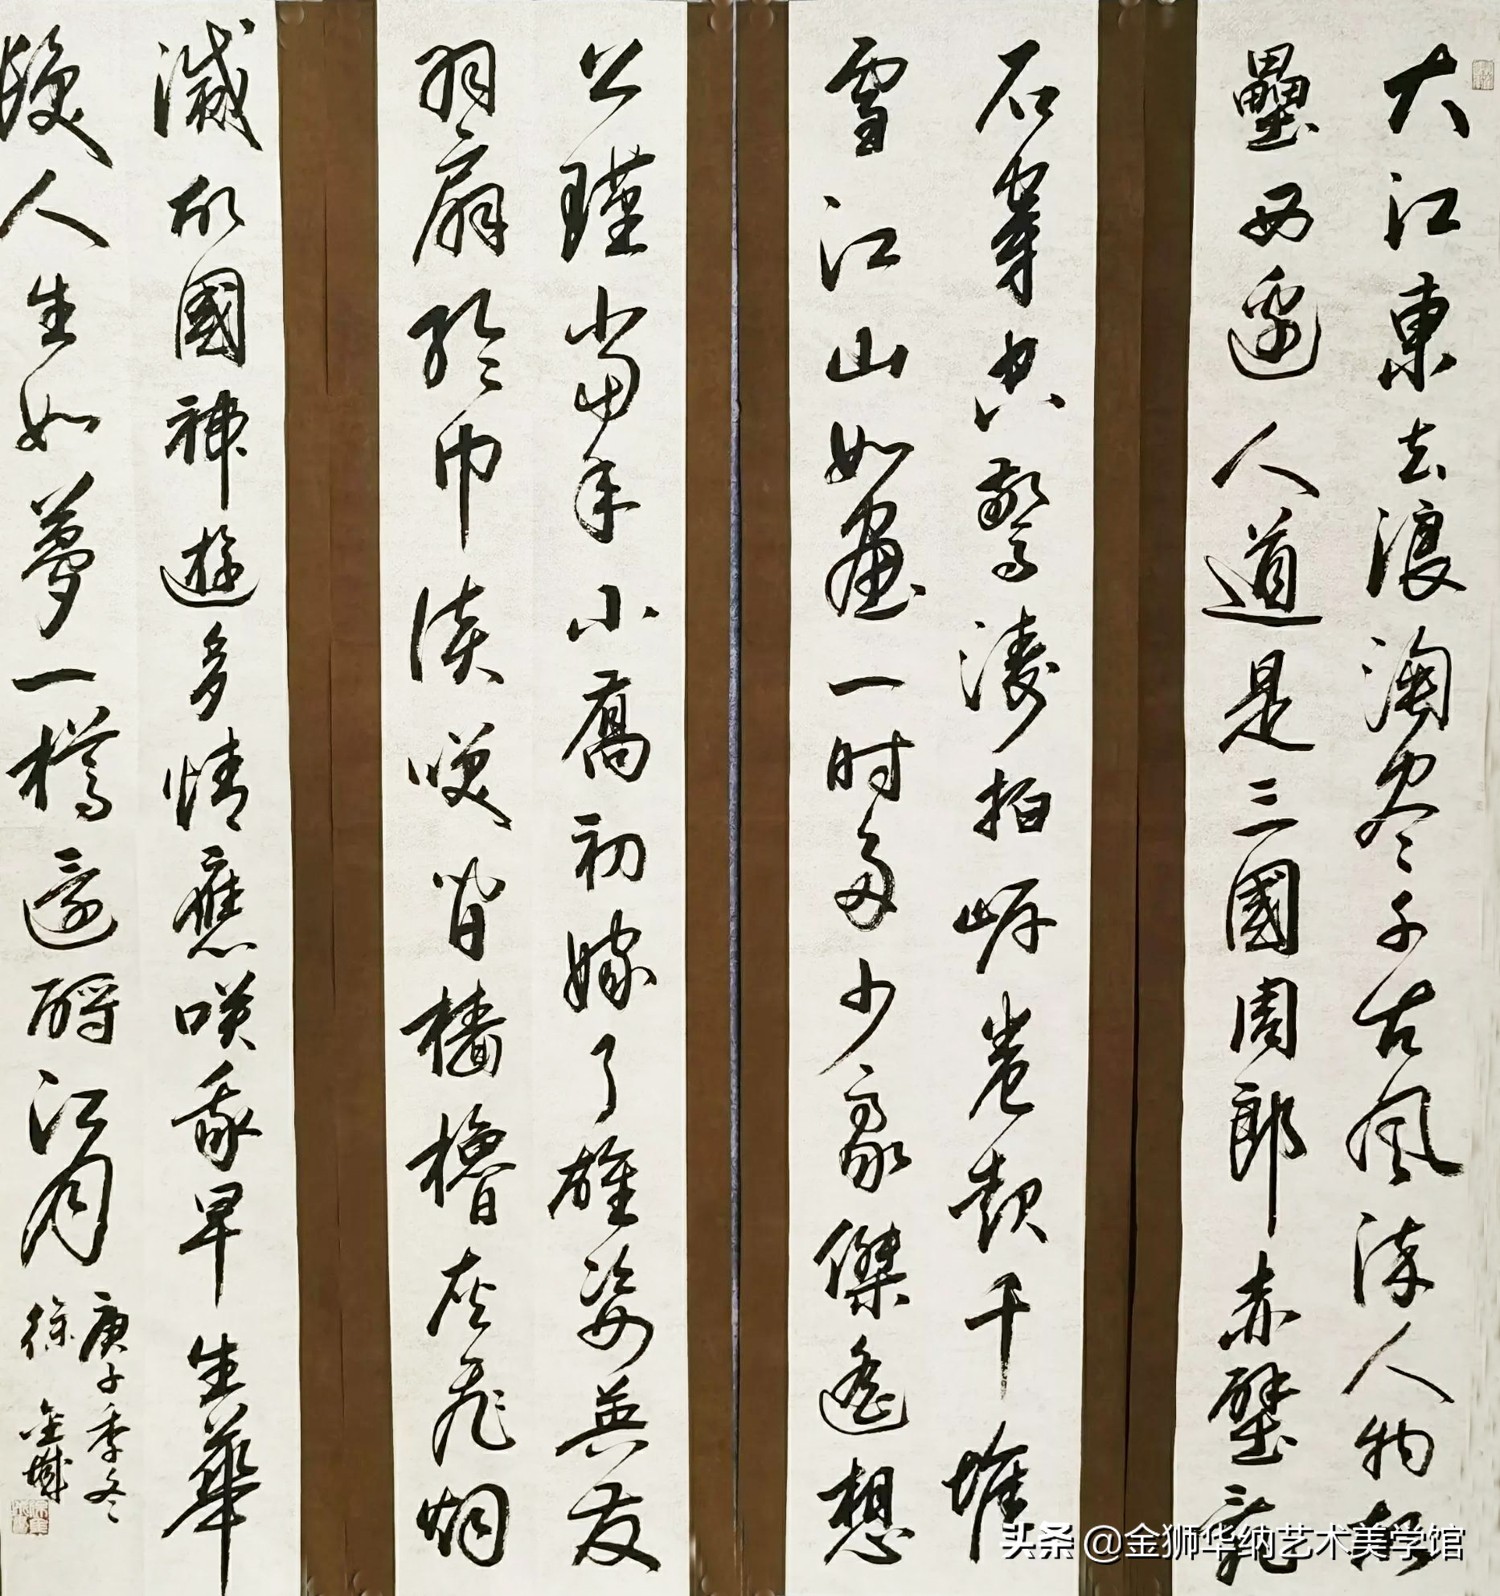 大江東去浪淘尽千古風流人物故
壘西邊人道是三國周郎赤壁亂
石穿空驚濤拍岸卷起千堆
雪江山如畫一时多少豪傑遙想
公瑾當年小喬初嫁了雄姿英发
羽扇綸巾談咲間檣櫓灰飛烟
滅故國神遊多情應咲我早生華
髮人生如夢一樽還酹江月
庚子季冬
徐金城
头条 @金狮华纳艺术美学馆